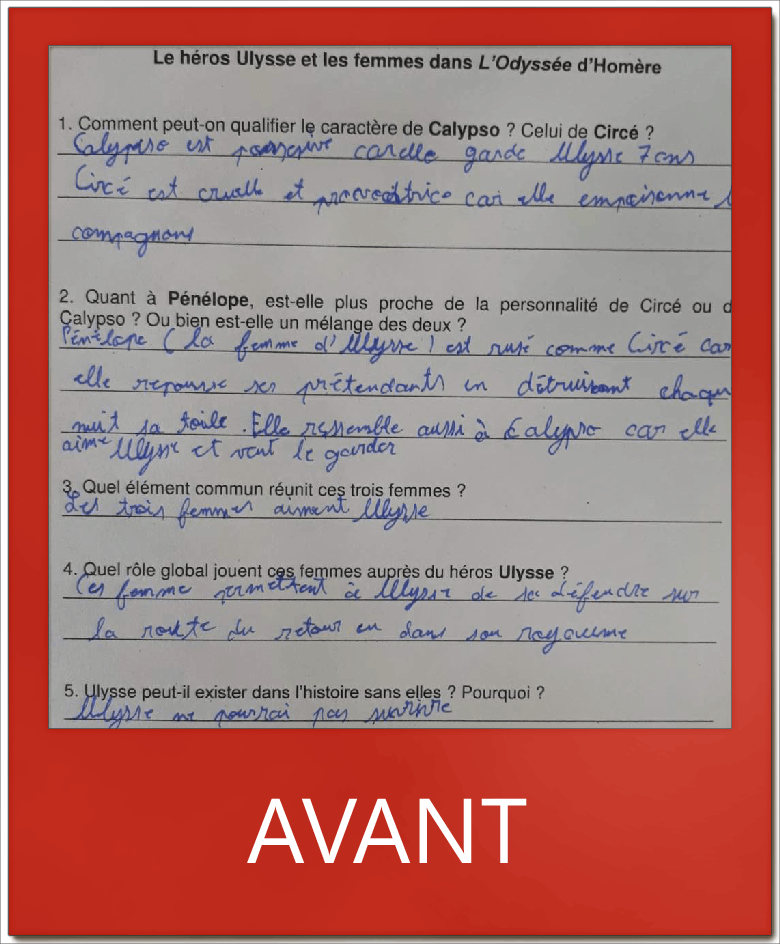 Le héros Ulysse et les femmes dans L'Odyssée d'Homère
1. Comment peut-on qualifier le caractère de Calypso ? Celui de Circé ?
Calypso est possesive carelle garde Ulysse 7 ans
Circé est cruelle et provocatrice car elle empoisonne
compagnons
2. Quant à Pénélope, est-elle plus proche de la personnalité de Circé ou d
Calypso ? Ou bien est-elle un mélange des deux ?
Pénélope ( la femme d'Ulysse ) est rusé comme Circé car
elle repousse ses prétendants en détruisant chaqu
nuit sa toile . Elle ressemble aussi à Calypso car elle
aime Ulysse et veut le garder
3. Quel élément commun réunit ces trois femmes ?
Les trois femmes aiment Ulysse
4. Quel rôle global jouent ces femmes auprès du héros Ulysse ?
Ces femme permettent à Ulysse de se défendre sur
la route du retour en dans son royaume
5. Ulysse peut-il exister dans l'histoire sans elles ? Pourquoi ?
Ulysse ne pourrai pas survivre
AVANT